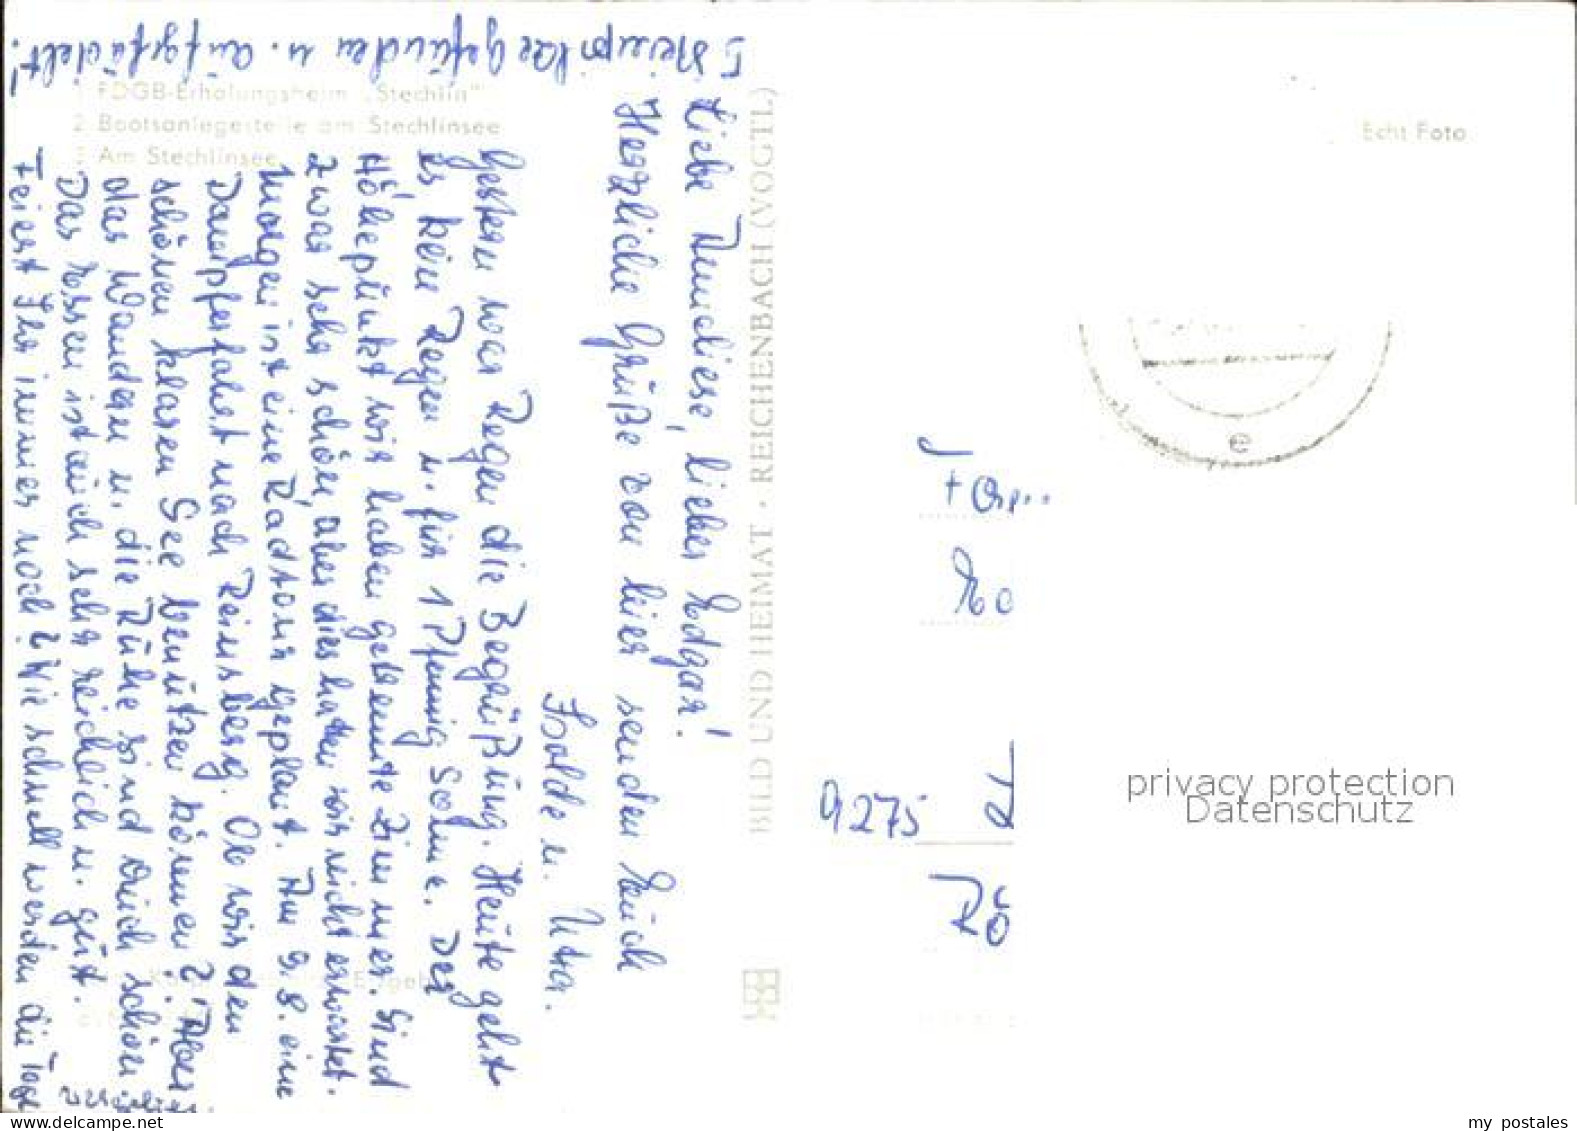 Liebe Annaliese, lieber Edgar!
Herzliche Grüße von hier senden Euch
Isolde u. Utra.
Gestern war Regen die Begrüßung. Heute geht
es kein Regen u. für 1 Pfennig Sonne. Der
Höhepunkt wir haben getrennte Zimmer. Sind
zwar sehr schön, aber dies hatten wir nicht erwartet.
Morgen ist eine Radtour geplant. Am 9.8. eine
Dampferfahrt nach Reinsberg. Ob wir den
schönen klaren See benutzen können? Aber
das Wandern u. die Ruhe sind auch schön.
Das Essen ist auch sehr reichlich u. gut.
Feiert Ihr immer noch? Wie schnell werden die Tage
vergehen
5 Steinpilze gefunden u. aufgefädelt!
1 FDGB-Erholungsheim „Stechlin“
2 Bootsanlegestelle am Stechlinsee
3 Am Stechlinsee
BILD UND HEIMAT · REICHENBACH (VOGTL)
Echt Foto
e
9275
privacy protection
Datenschutz
delcampe.net
my postales